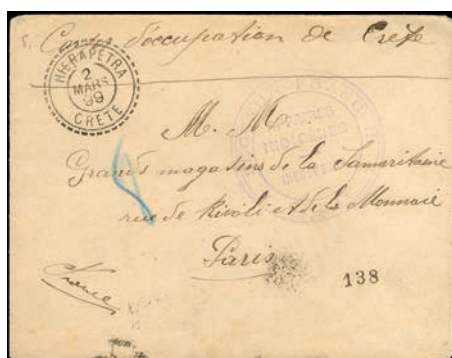 Corps d'occupation de Crète
HIERAPETRA
2
MARS
99
CRETE
M. M.
Grands magasins de la Samaritaine
rue de Rivoli et de la Monnaie
Paris
138
France
INDIGÈNE